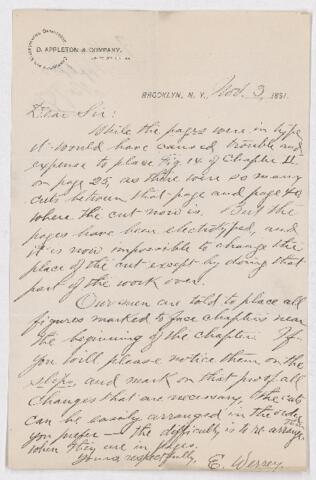 COMPOSING AND ELECTROTYPING DEPARTMENT
D. APPLETON & COMPANY.
BROOKLYN, N. Y., Nov. 3, 1881.
Dear Sir:
While the pages were in type
it would have caused trouble and
expense to place Fig 14 of Chapter II
on page 25, as there were so many
cuts between that page and page 40,
where the cut now is. But the
pages have been electrotyped, and
it is now impossible to change the
place of the cut except by doing that
part of the work over.
Our men are told to place all
figures marked to face chapters near
the beginning of the chapter. If
you will please notice them on the
slips and mark on that proof all
changes that are necessary, the cuts
can be easily arranged in the order
you prefer — the difficulty is to re-arrange
when they are in pages.
Yours respectfully,
E.